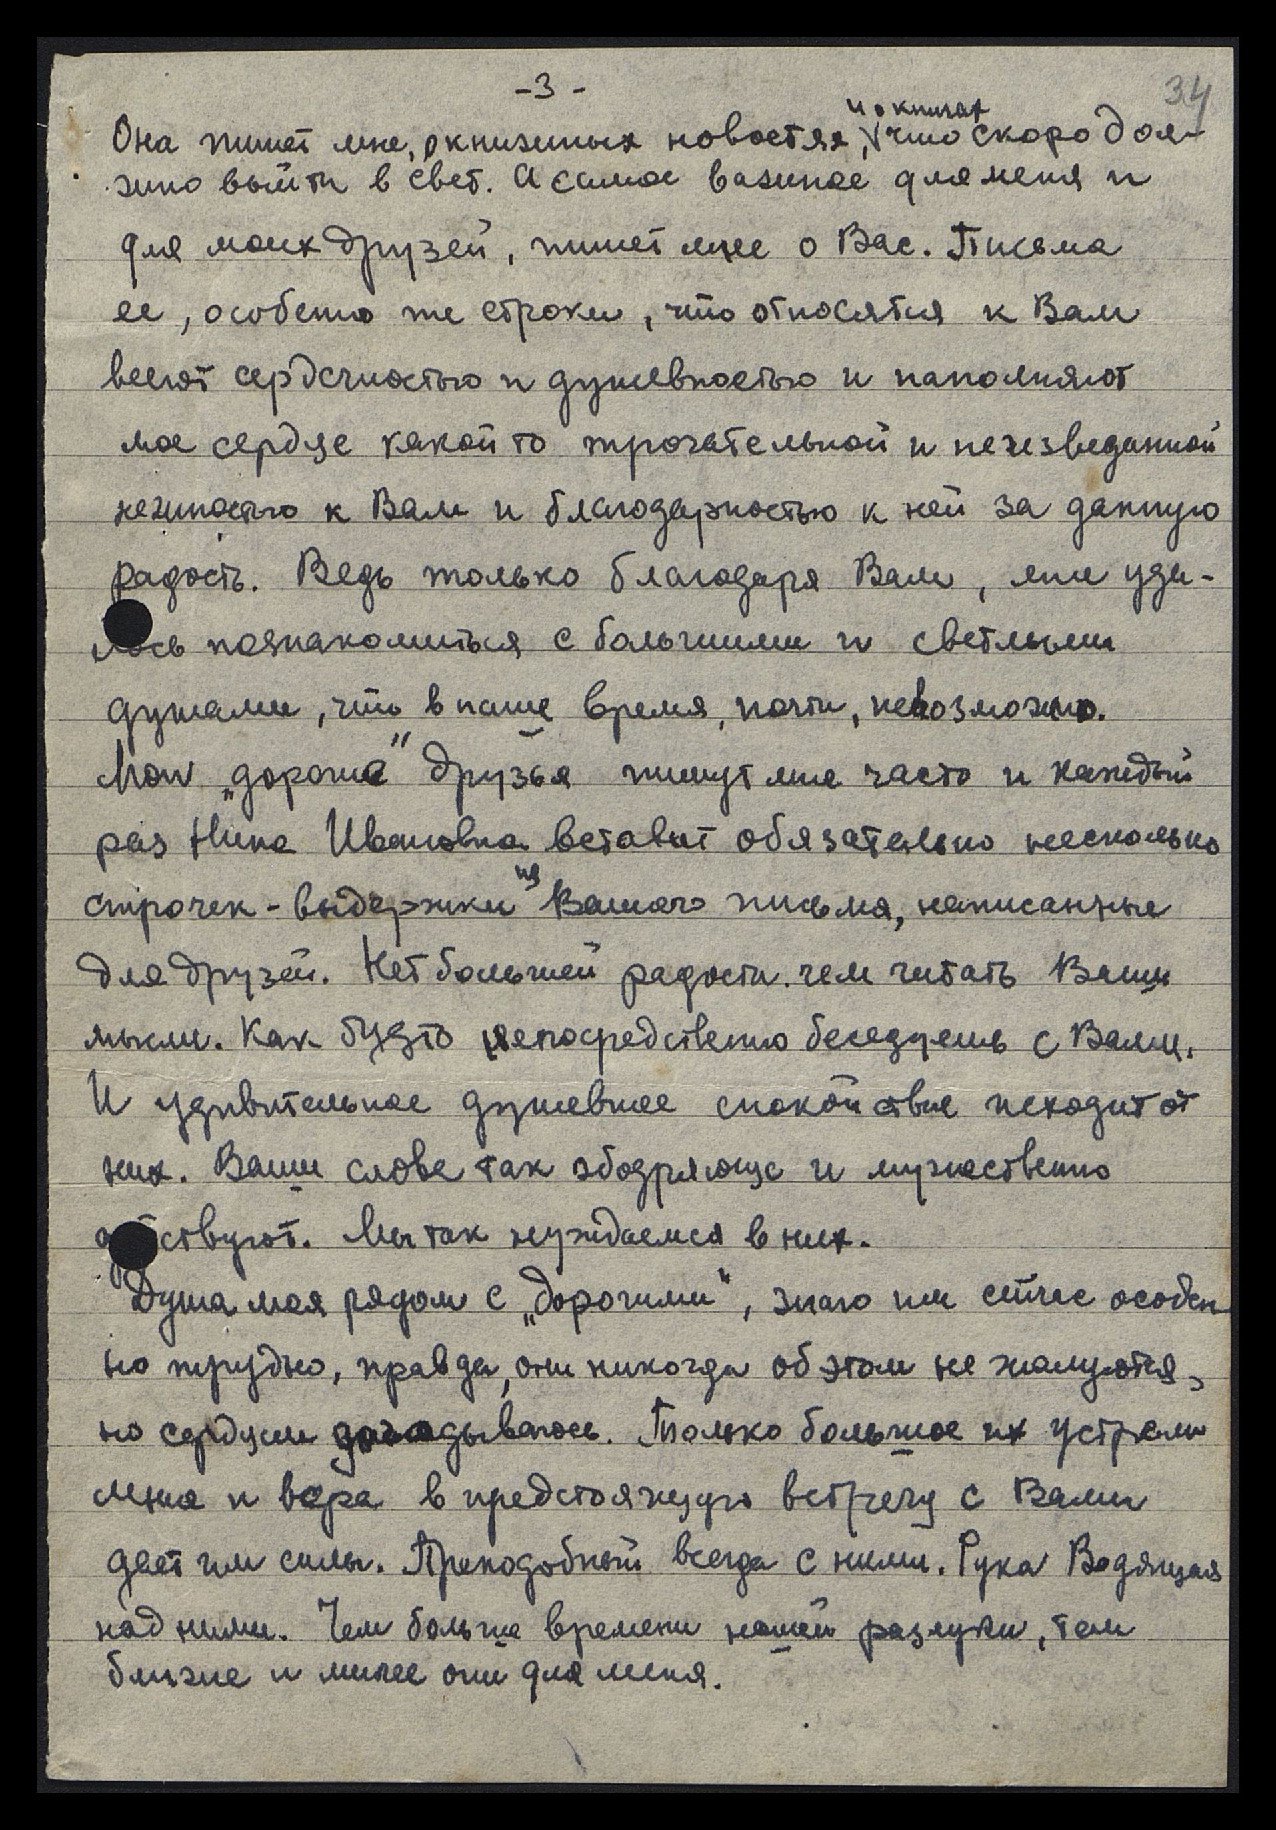 -3-
34
и о книгах
Она пишет мне, о книжных новостях, что скоро дол-
жно выйти в свет. А самое важное для меня и
для моих друзей, пишет мне о Вас. Письма
ее, особенно же строки, что относятся к Вам
веют сердечностью и душевностью и наполняют
мое сердце какой то трогательной и неизведанной
нежностью к Вам и благодарностью к ней за данную
радость. Ведь только благодаря Вам, мне уда-
лось познакомиться с большими и светлыми
душами, что в наше время, почти, невозможно.
Мои „дорогие" друзья пишут мне часто и каждый
раз Нина Ивановна вставит обязательно несколько
из
строчек - выдержки Вашего письма, написанные
для друзей. Нет большей радости. чем читать Ваши
мысли. Как будто непосредственно беседуешь с Вами.
И удивительное душевное спокойствие исходит от
них. Ваши слова так ободряюще и мужественно
действуют. Мы так нуждаемся в них.
Душа моя рядом с „дорогими", знаю им сейчас особен
но трудно, правда, они никогда об этом не жалуются,
но сердцем догадываюсь. Только большое их устрем
ление и вера в предстоящую встречу с Вами
дает им силы. Преподобный всегда с ними. Рука Водящая
над ними. Чем больше времени нашей разлуки, тем
ближе и милее они для меня.